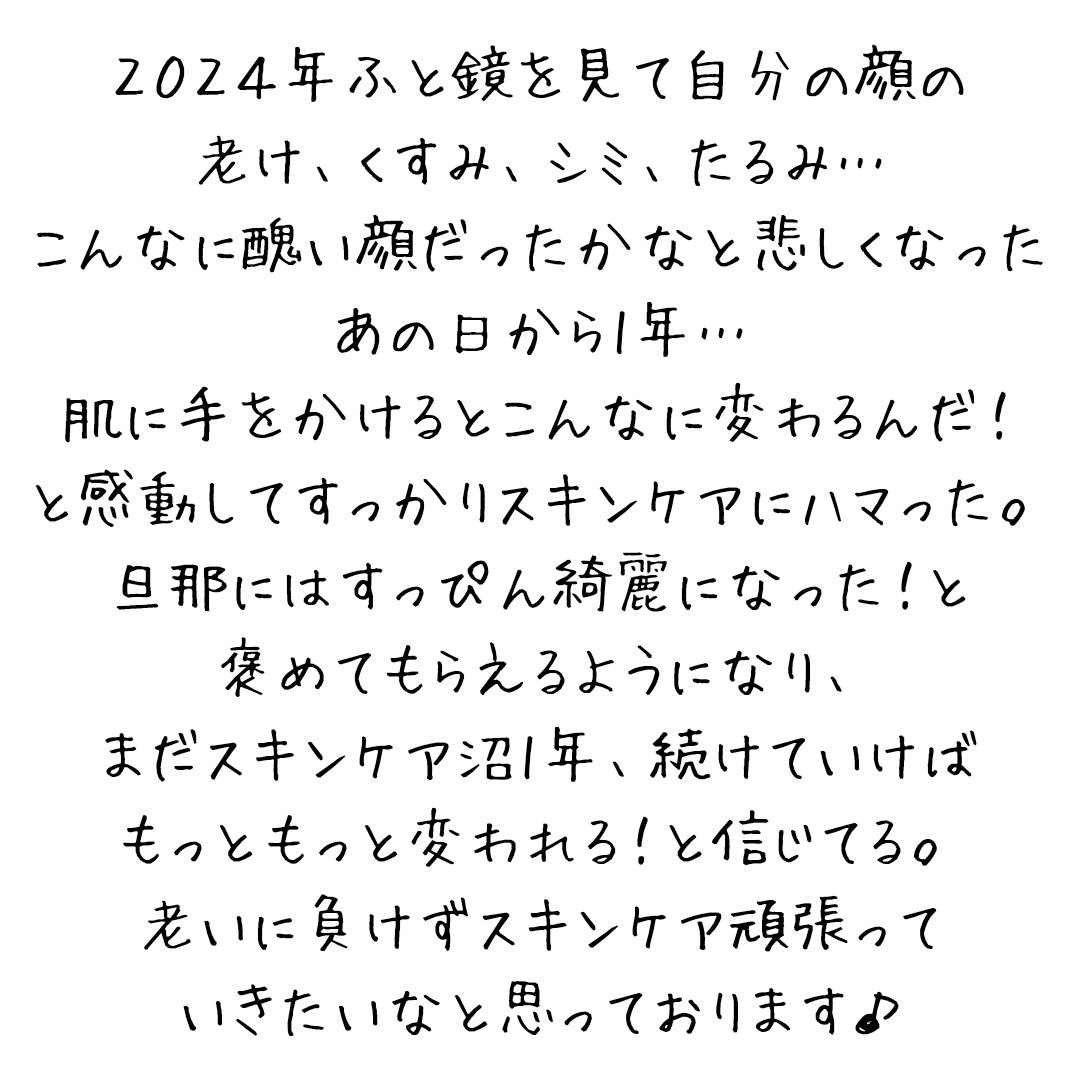 2024年ふと鏡を見て自分の顔の
老け、くすみ、シミ、たるみ…
こんなに醜い顔だったかなと悲しくなった
あの日から1年…
肌に手をかけるとこんなに変わるんだ！
と感動してすっかりスキンケアにハマった。
旦那にはすっぴん綺麗になった！と
褒めてもらえるようになり、
まだスキンケア沼1年、続けていけば
もっともっと変われる！と信じてる。
老いに負けずスキンケア頑張って
いきたいなと思っております♪